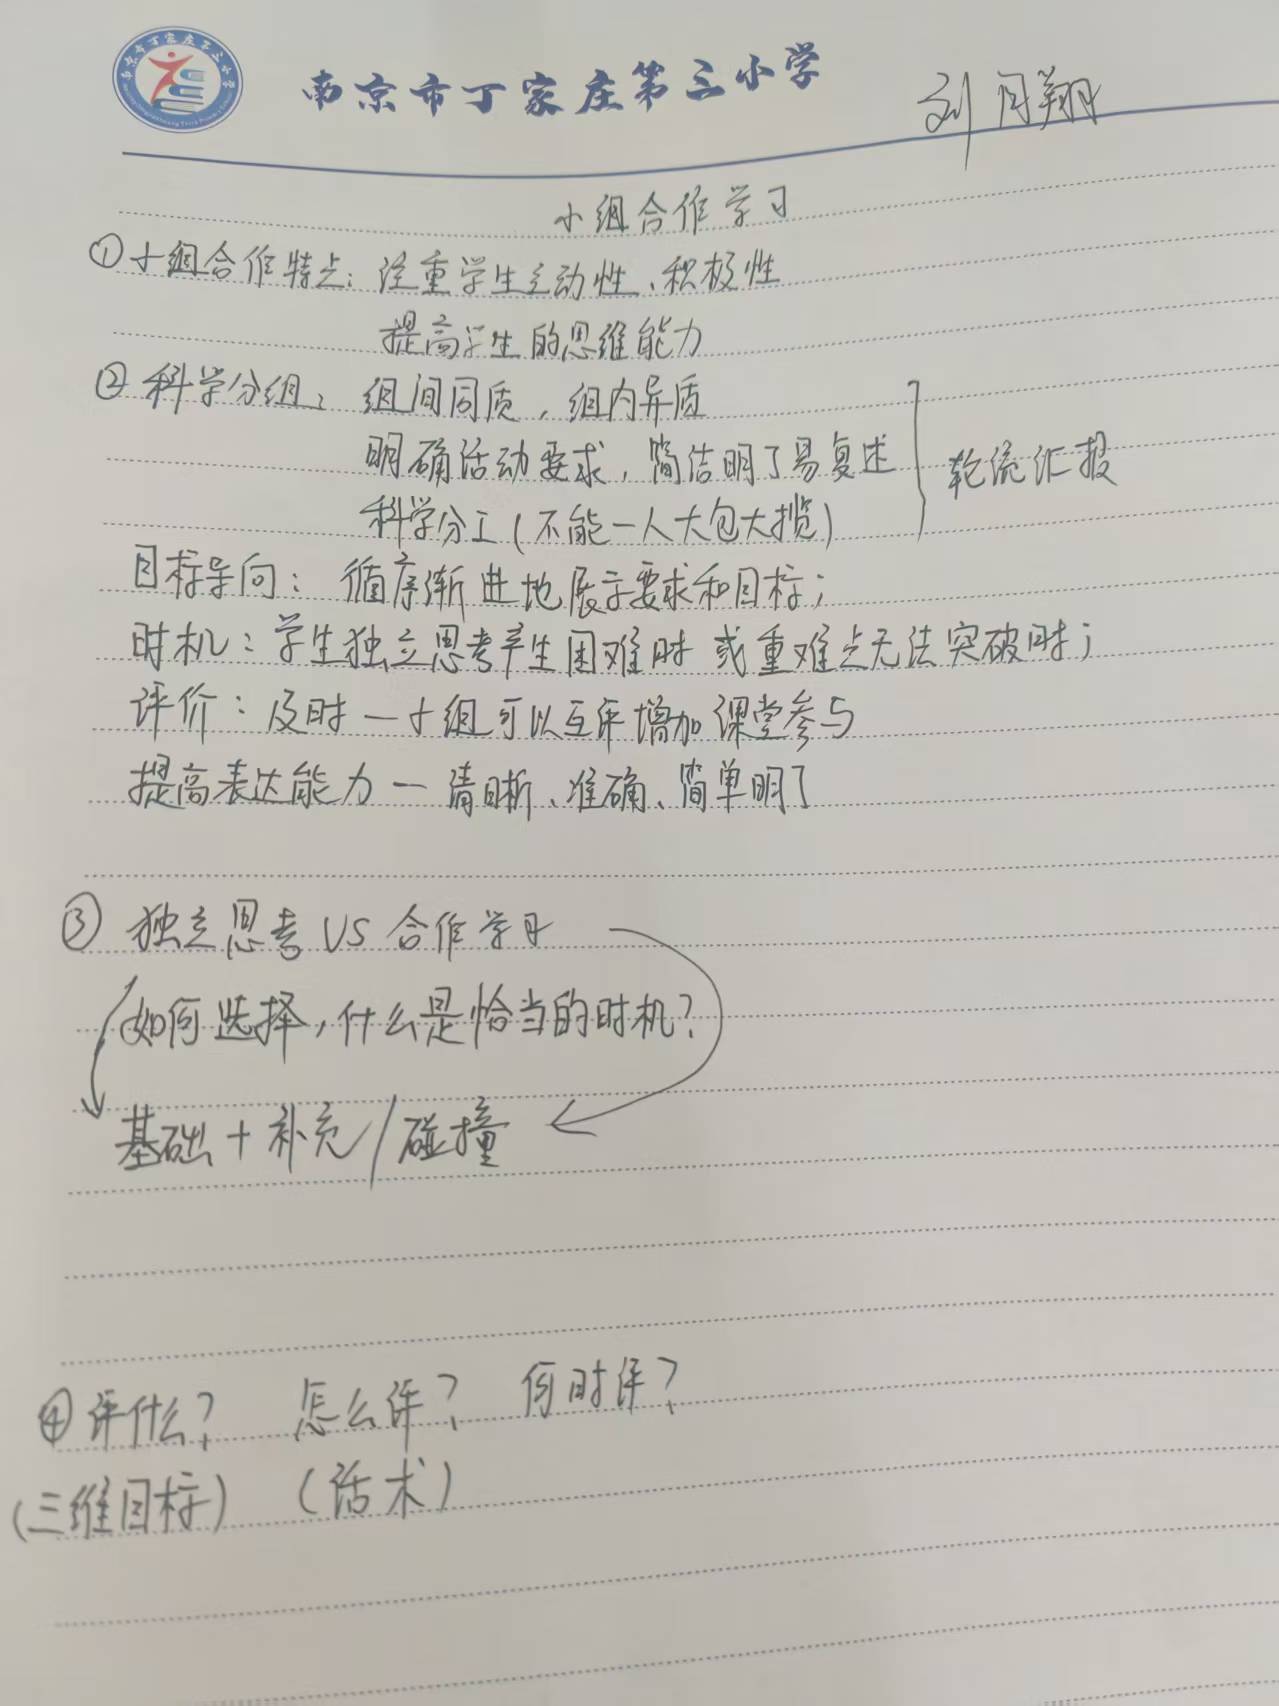 南京市丁家庄第三小学
刘月翔
小组合作学习
①小组合作特点：注重学生主动性、积极性
提高学生的思维能力
②科学分组：组间同质，组内异质
明确活动要求，简洁明了易复述
科学分工（不能一人大包大揽）
轮流汇报
目标导向：循序渐进地展示要求和目标；
时机：学生独立思考产生困难时或重难点无法突破时；
评价：及时—小组可以互评增加课堂参与
提高表达能力—清晰、准确、简单明了
③独立思考VS合作学习
如何选择，什么是恰当的时机？
基础+补充/碰撞
④评什么？ 怎么评？ 何时评？
（三维目标） （话术）